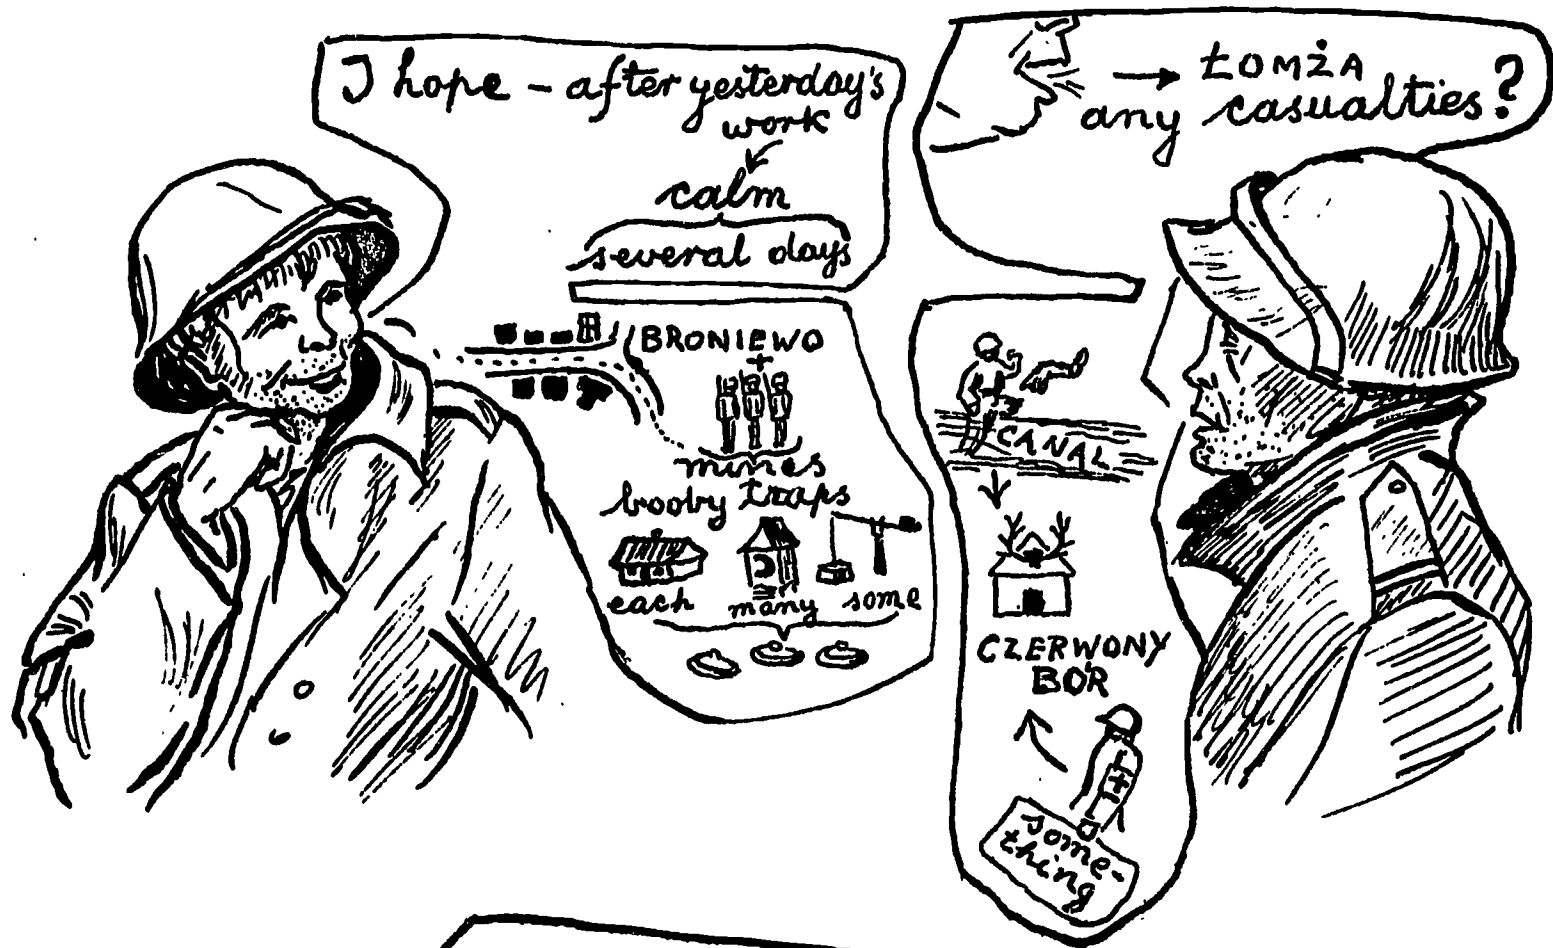 I hope - after yesterday's
work
calm
several days
→ ŁOMŻA
any casualties?
BRONIEWO
+
mines
booby traps
each many some
CANAL
CZERWONY
BÓR
some-
thing